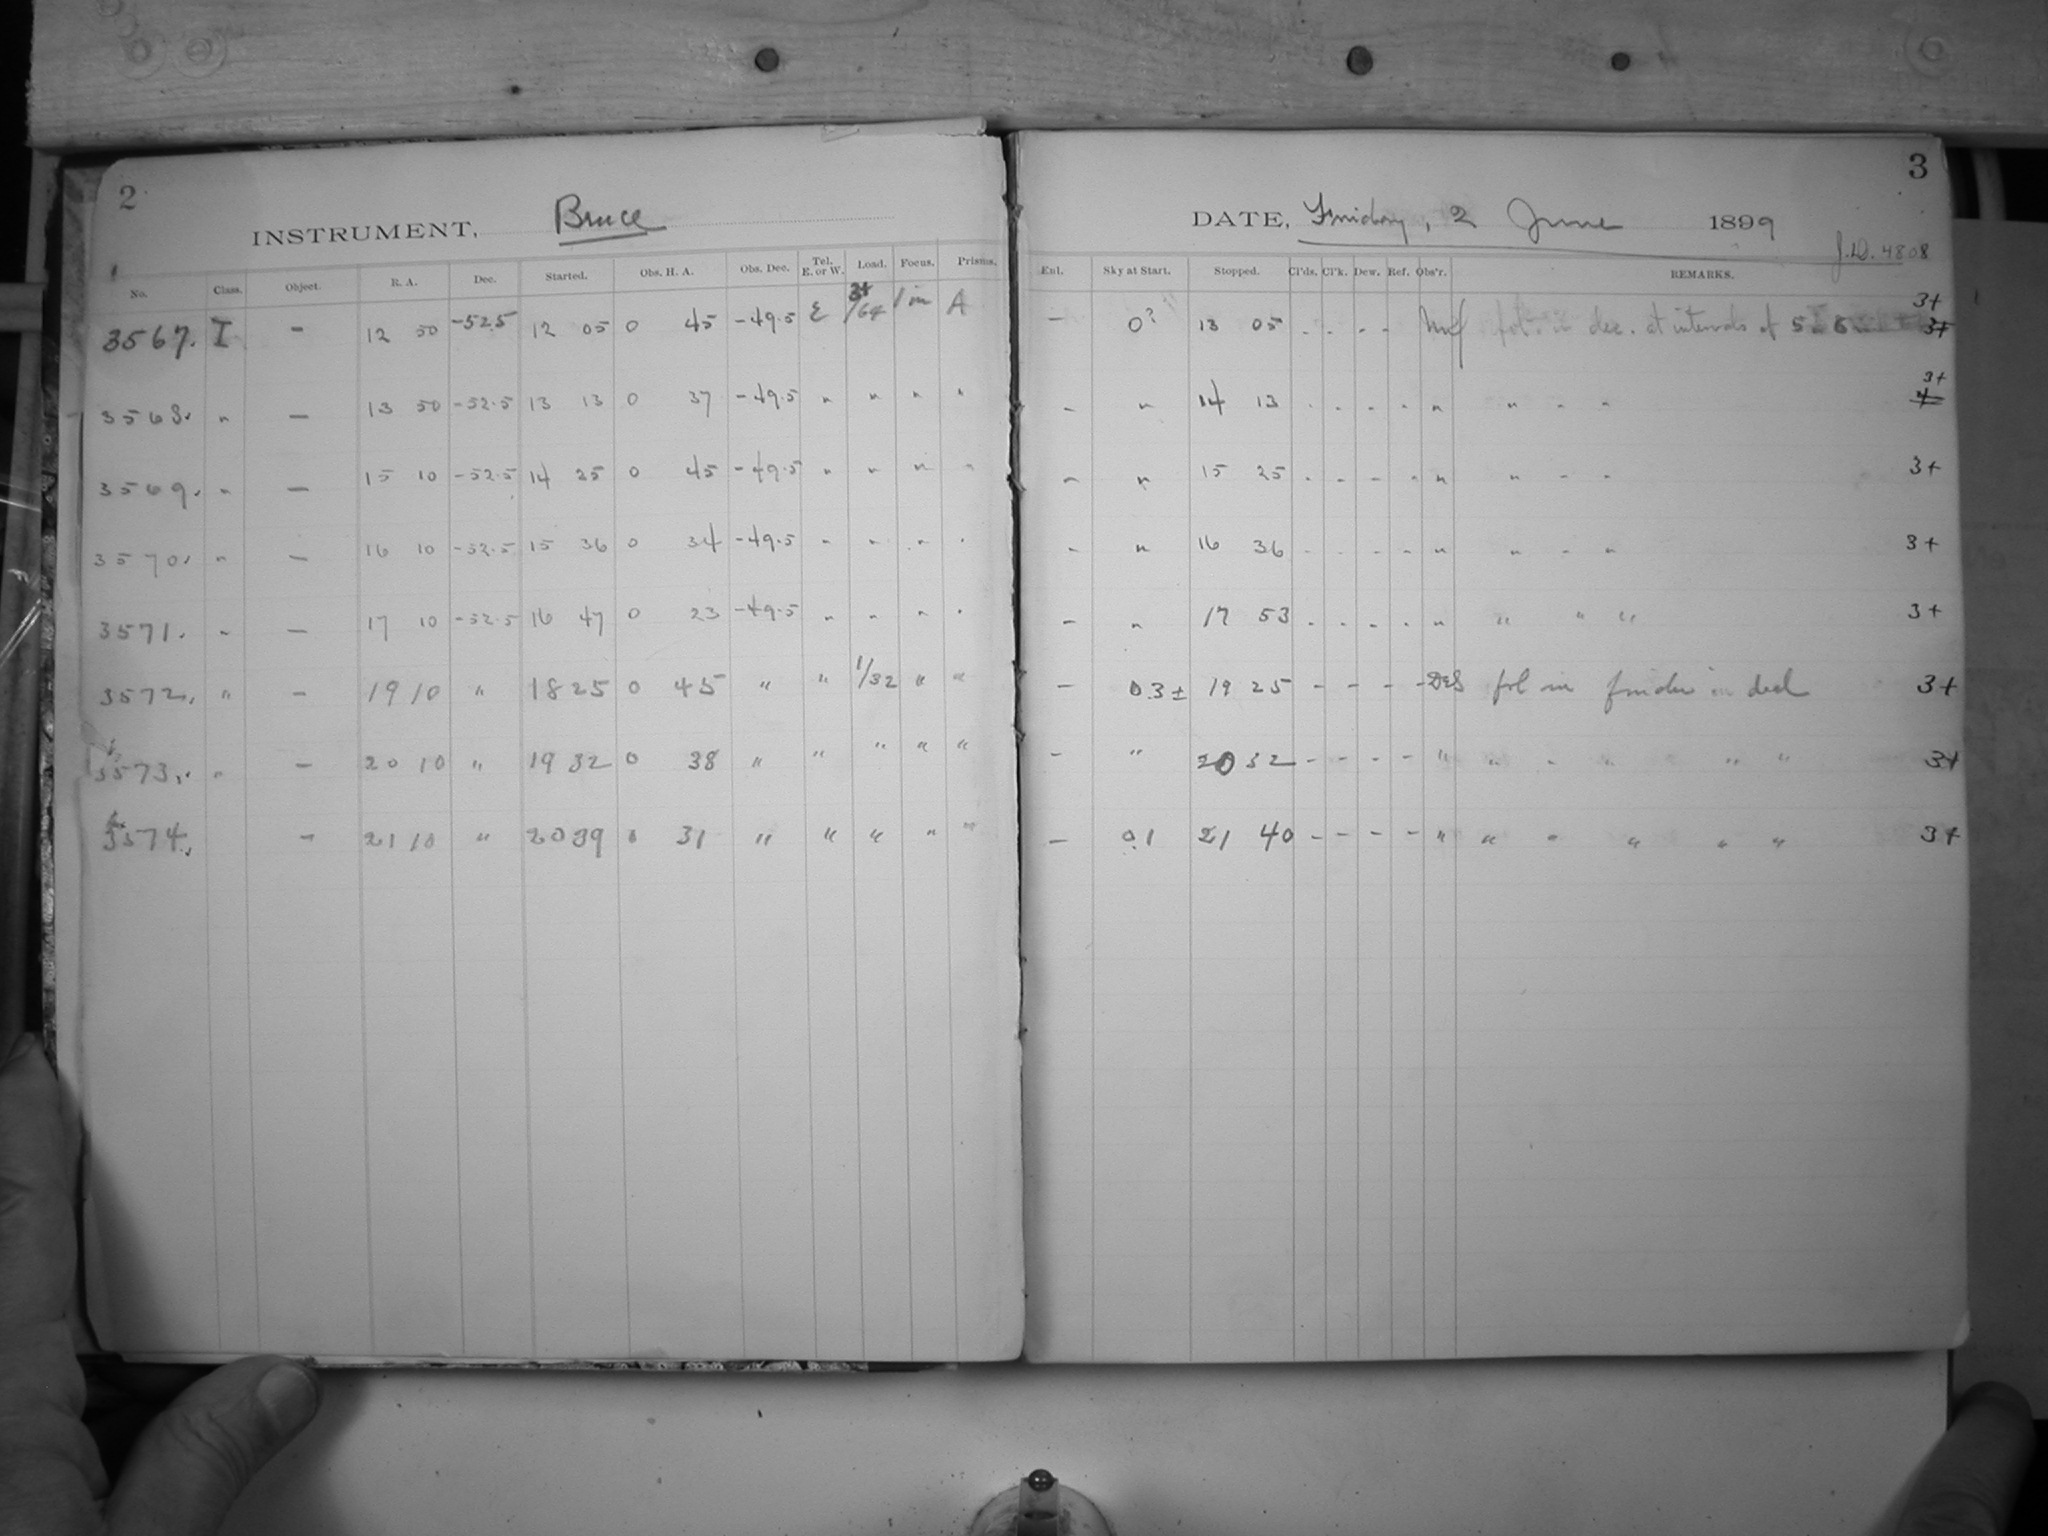 2
INSTRUMENT, Bruce
No. Class. Object. R. A. Dec. Started. Obs. H. A. Obs. Dec. Tel. E. or W. Load. Focus. Prisms.
3567. I - 12 50 -52.5 12 05 0 45 -49.5 E 1/64 1 in A
3568. " - 13 50 -52.5 13 13 0 37 -49.5 " " " "
3569. " - 15 10 -52.5 14 25 0 45 -49.5 " " " "
3570. " - 16 10 -52.5 15 36 0 34 -49.5 " " " "
3571. " - 17 10 -52.5 16 47 0 23 -49.5 " " " "
3572. " - 19 10 " 18 25 0 45 " " 1/32 " "
3573. " - 20 10 " 19 32 0 38 " " " " "
3574. - 21 10 " 20 39 0 31 " " " " "
3
DATE, Friday, 2 June 1899
J.D. 4808
Enl. Sky at Start. Stopped. Cl'ds. Cl'k. Dew. Ref. Obs'r. REMARKS.
3+
- 0? 13 05 - - - - fol. in dec. at intervals of 3+
3+
- " 14 13 - - - - " " - "
- " 15 25 - - - - " " - " 3+
- " 16 36 - - - - " " - " 3+
- " 17 53 - - - - " " " " 3+
- 0.3± 19 25 - - - - DES fol in finder in decl 3+
- " 20 32 - - - - " " " " " " 3+
- 0.1 21 40 - - - - " " " " " " 3+